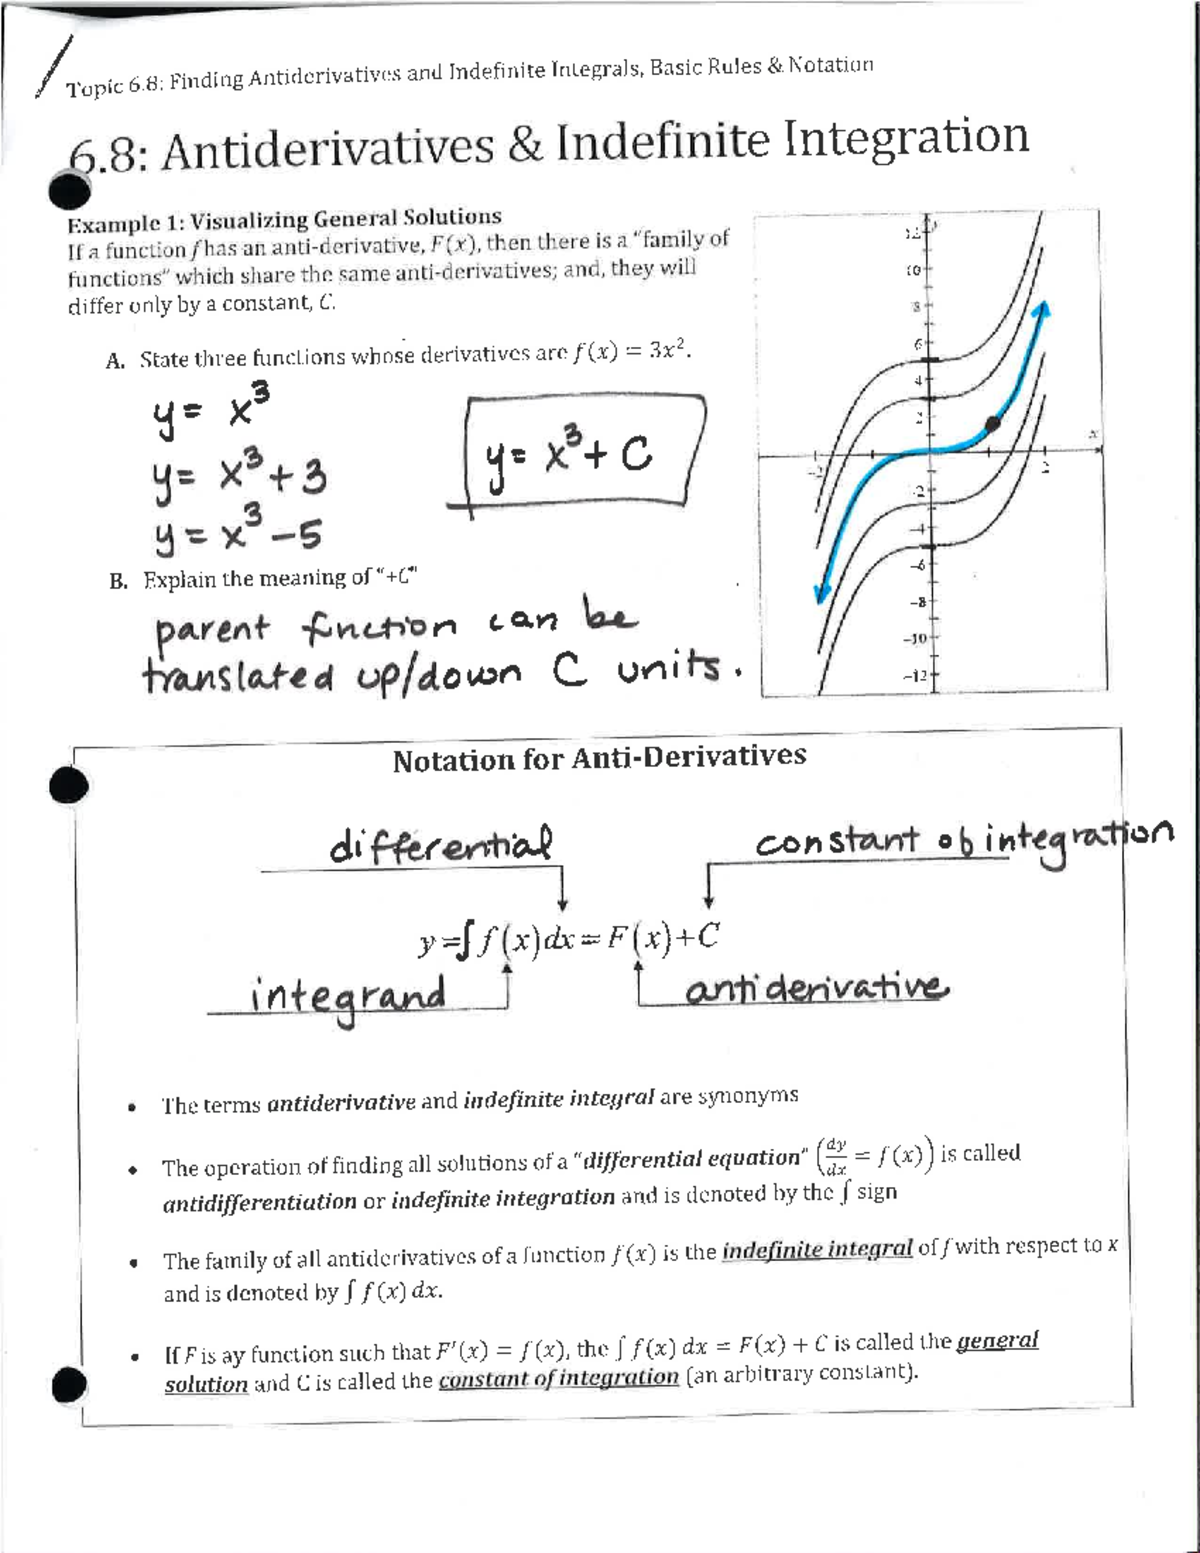 Topic 6.8: Finding Antiderivatives and Indefinite Integrals, Basic Rules & Notation
6.8: Antiderivatives & Indefinite Integration
Example 1: Visualizing General Solutions
If a function f has an anti-derivative, F(x), then there is a "family of
functions" which share the same anti-derivatives; and, they will
differ only by a constant, C.
A. State three functions whose derivatives are f(x) = 3x².
y = x³
y = x³ + 3
y = x³ - 5
y = x³ + C
B. Explain the meaning of "+C"
parent function can be
translated up/down C units.
12
10
8
6
4
2
-2
-4
-6
-8
-10
-12
-2
2
x
Notation for Anti-Derivatives
differential
constant of integration
y = ∫ f(x) dx = F(x) + C
integrand
antiderivative
• The terms antiderivative and indefinite integral are synonyms
• The operation of finding all solutions of a "differential equation" (dy/dx = f(x)) is called
antidifferentiation or indefinite integration and is denoted by the ∫ sign
• The family of all antiderivatives of a function f(x) is the indefinite integral of f with respect to x
and is denoted by ∫ f(x) dx.
• If F is ay function such that F'(x) = f(x), the ∫ f(x) dx = F(x) + C is called the general
solution and C is called the constant of integration (an arbitrary constant).